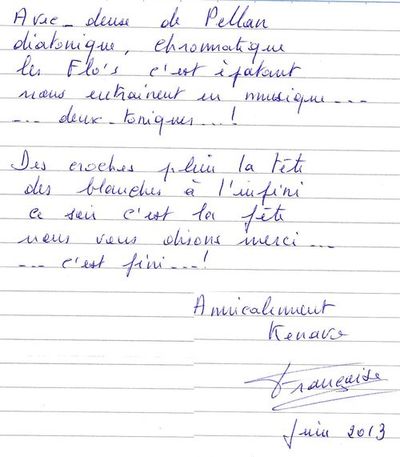 Avec_ deuse de Pellan
diatonique, chromatique
les Flo's c'est épatant
nous entraînent en musique...
... deux-toniques...!
Des croches plein la tête
des blanches à l'infini
ce soir c'est la fête
nous vous disons merci...
... c'est fini...!
Amicalement
Kenavo
Françoise
Juin 2013